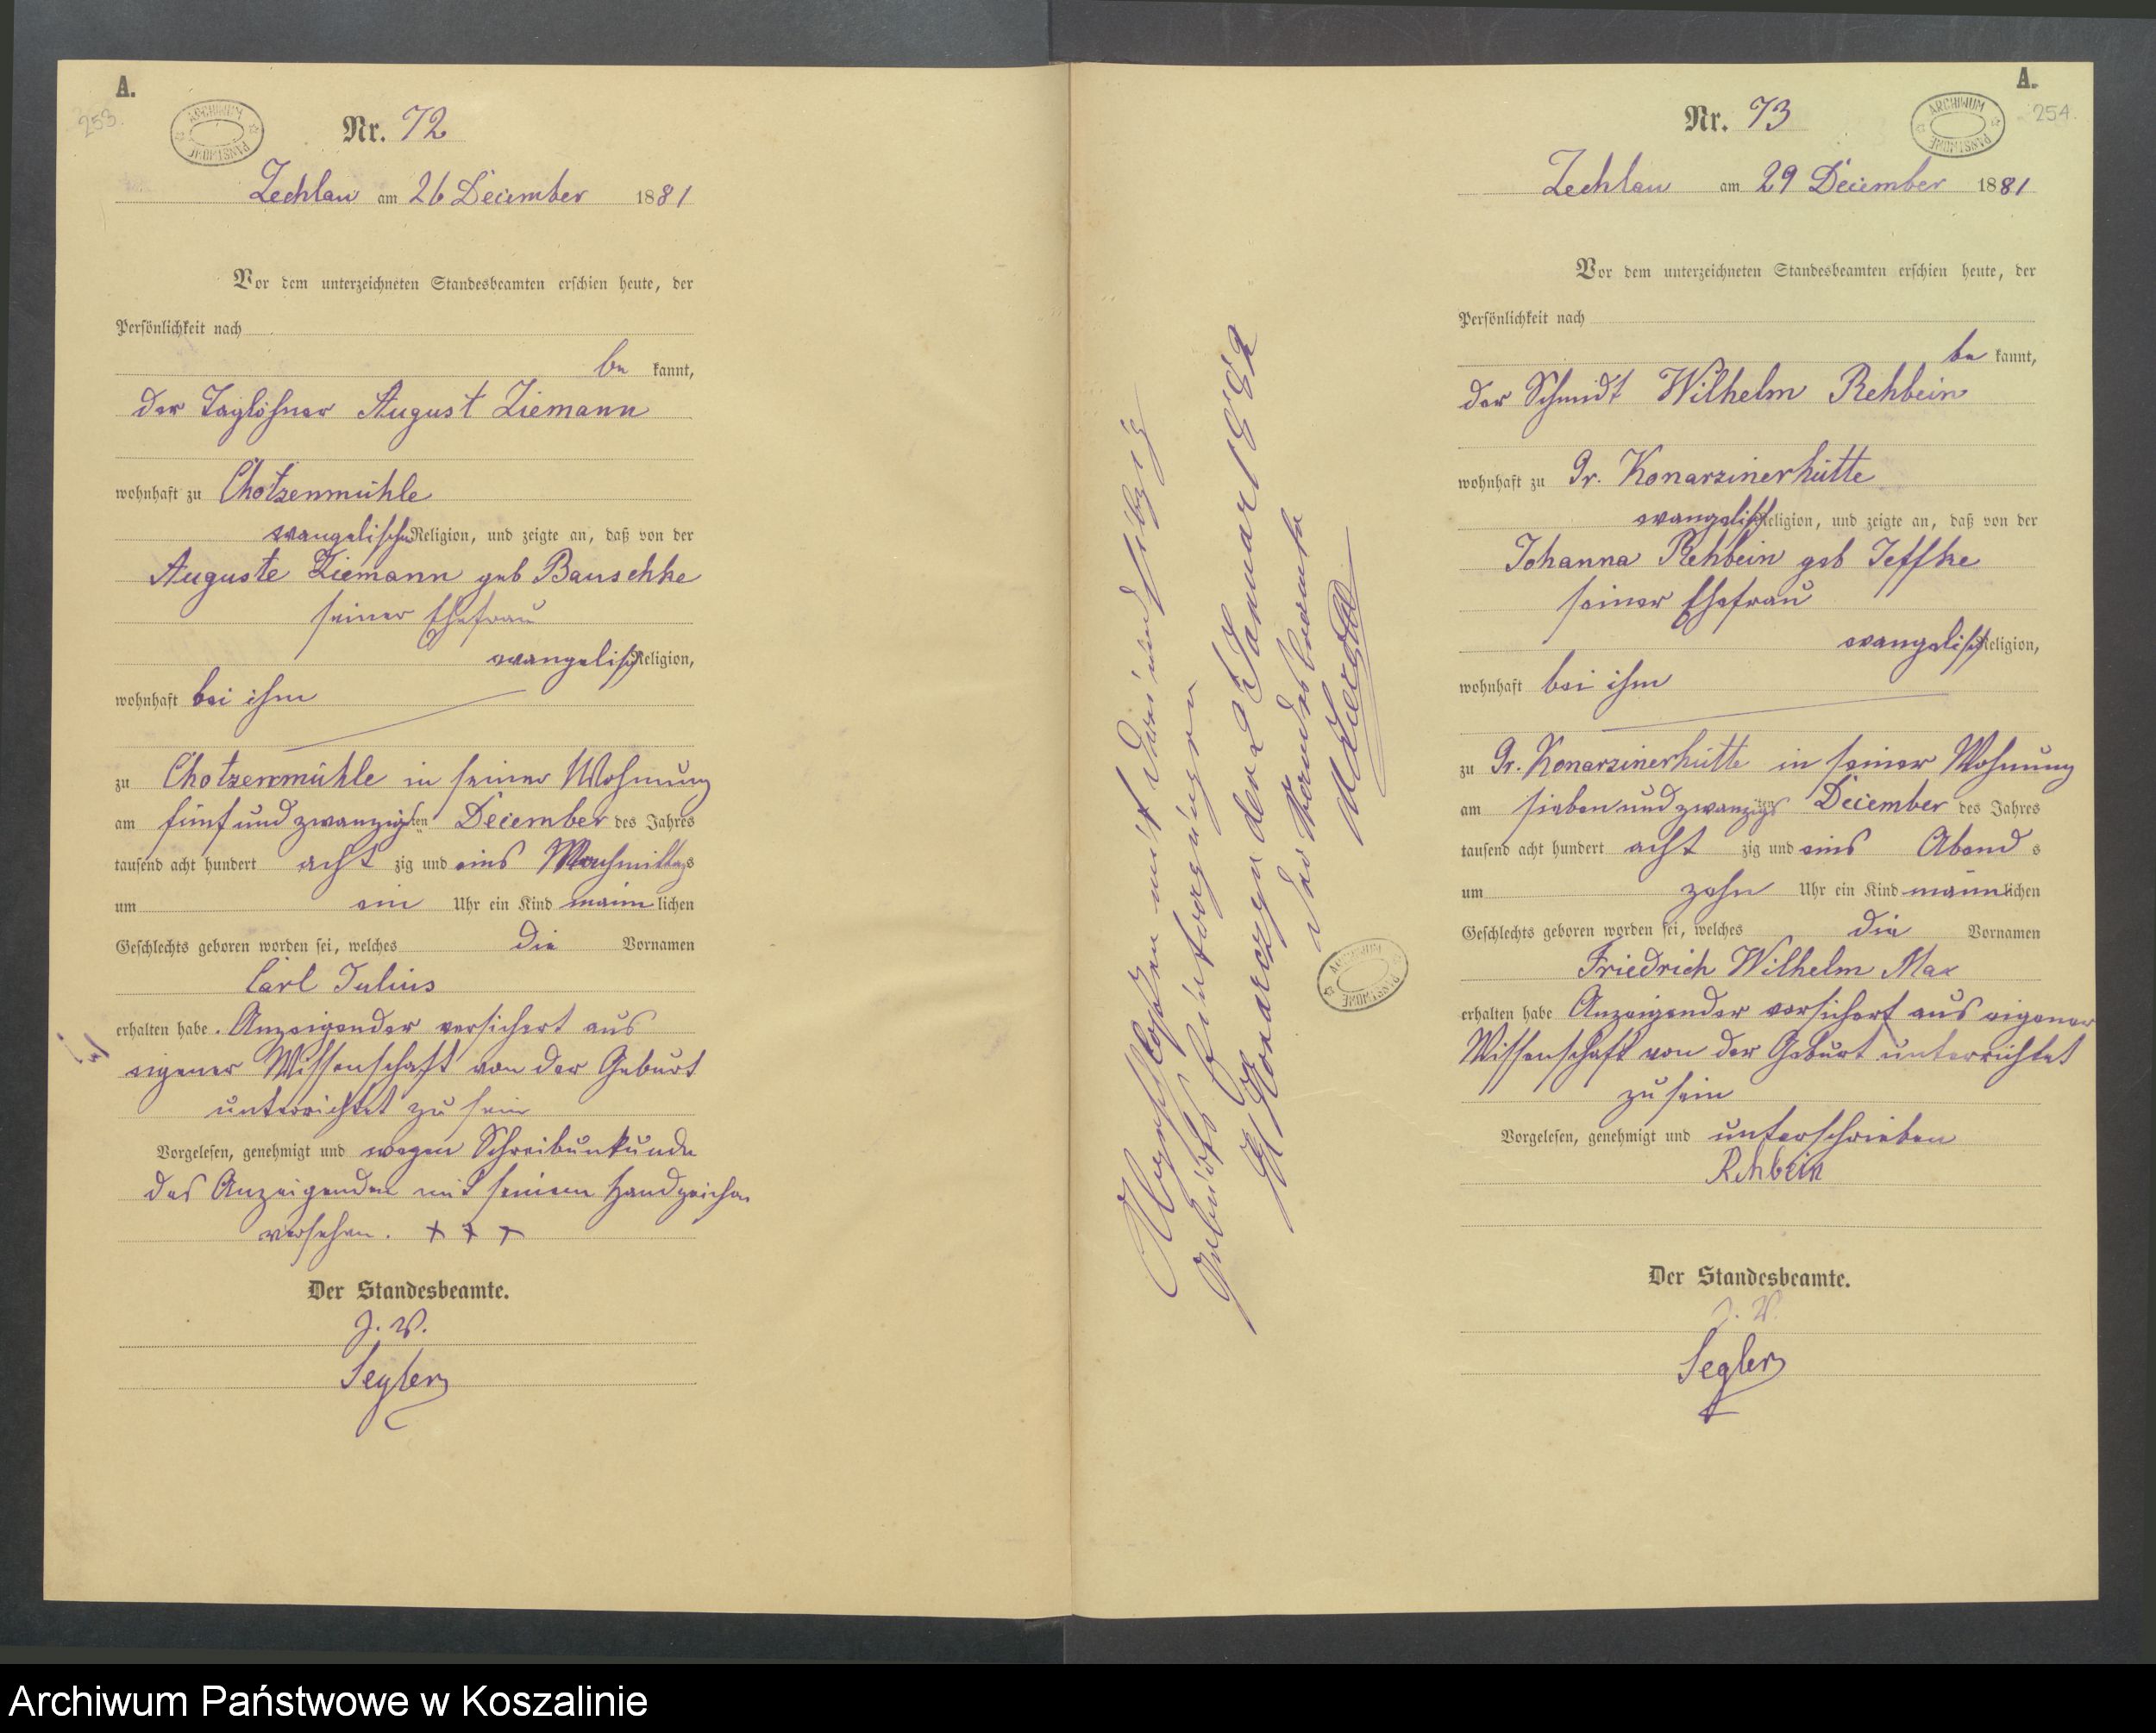 A.
253.
ARCHIWUM PAŃSTWOWE
Nr. 72
Zechlau am 26 December 1881
Vor dem unterzeichneten Standesbeamten erschien heute, der
Persönlichkeit nach
be kannt,
der Taglöhner August Ziemann
wohnhaft zu Chotzenmühle
evangelischer Religion, und zeigte an, daß von der
Auguste Ziemann geb Bauschke
seiner Ehefrau
evangelisch Religion,
wohnhaft bei ihm
zu Chotzenmühle in seiner Wohnung
am fünf und zwanzigsten December des Jahres
tausend acht hundert acht zig und eins Nachmittags
um ein Uhr ein Kind männ lichen
Geschlechts geboren worden sei, welches die Vornamen
Carl Julius
erhalten habe. Anzeigender versichert aus
eigener Wissenschaft von der Geburt
unterrichtet zu sein
Vorgelesen, genehmigt und wegen Schreibunkunde
des Anzeigenden mit seinem Handzeichen
versehen. + + +
Der Standesbeamte.
J. V.
Segler
Abgeschlossen mit drei und siebzig
Geburts Eintragungen
Gr Konarczyn den 2 Januar 1882
Der Standesbeamte
ARCHIWUM PAŃSTWOWE
A.
254.
ARCHIWUM PAŃSTWOWE
Nr. 73
Zechlau am 29 December 1881
Vor dem unterzeichneten Standesbeamten erschien heute, der
Persönlichkeit nach
be kannt,
der Schmidt Wilhelm Rehbein
wohnhaft zu Gr. Konarzinerhütte
evangelisch Religion, und zeigte an, daß von der
Johanna Rehbein geb Jeffke
seiner Ehefrau
evangelisch Religion,
wohnhaft bei ihm
zu Gr. Konarzinerhütte in seiner Wohnung
am sieben und zwanzigsten December des Jahres
tausend acht hundert acht zig und eins Abend s
um zehn Uhr ein Kind männlichen
Geschlechts geboren worden sei, welches die Vornamen
Friedrich Wilhelm Max
erhalten habe Anzeigender versichert aus eigener
Wissenschaft von der Geburt unterrichtet
zu sein
Vorgelesen, genehmigt und unterschrieben
Rehbein
Der Standesbeamte.
J. V.
Segler
Archiwum Państwowe w Koszalinie